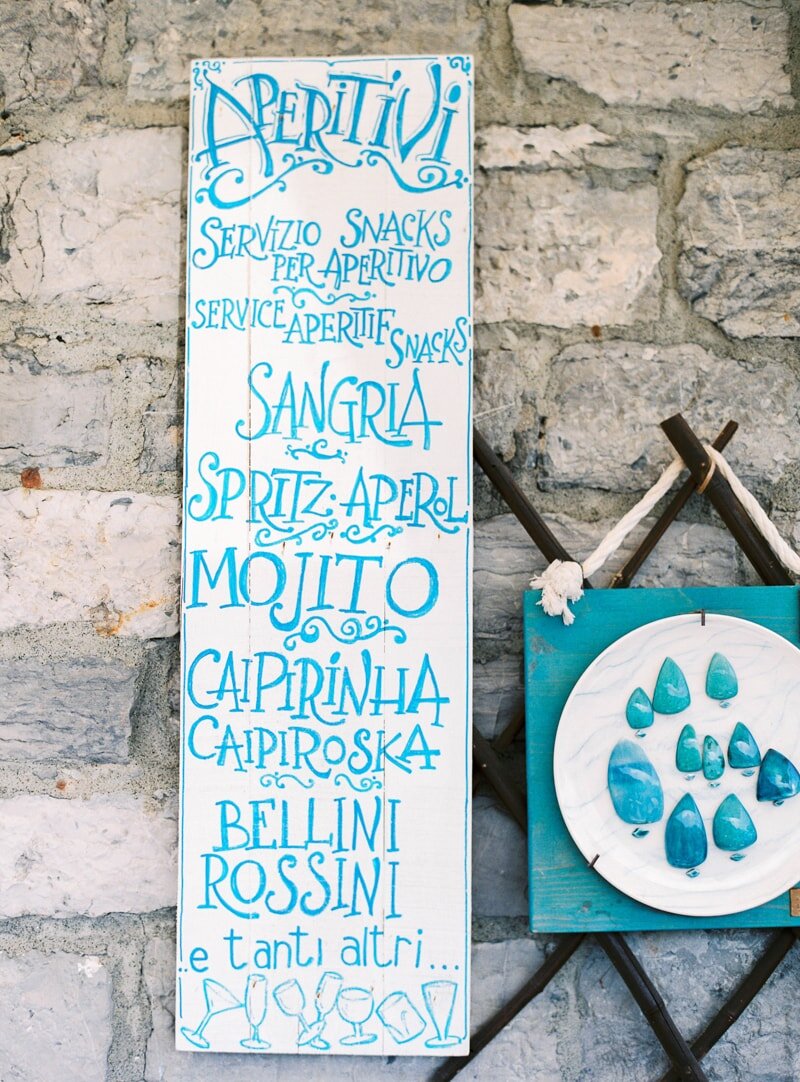 APERITIVI
SERVIZIO SNACKS
PER APERITIVO
SERVICE APERITIF SNACKS
SANGRIA
SPRITZ·APEROL
MOJITO
CAIPIRINHA
CAIPIROSKA
BELLINI
ROSSINI
..e tanti altri...